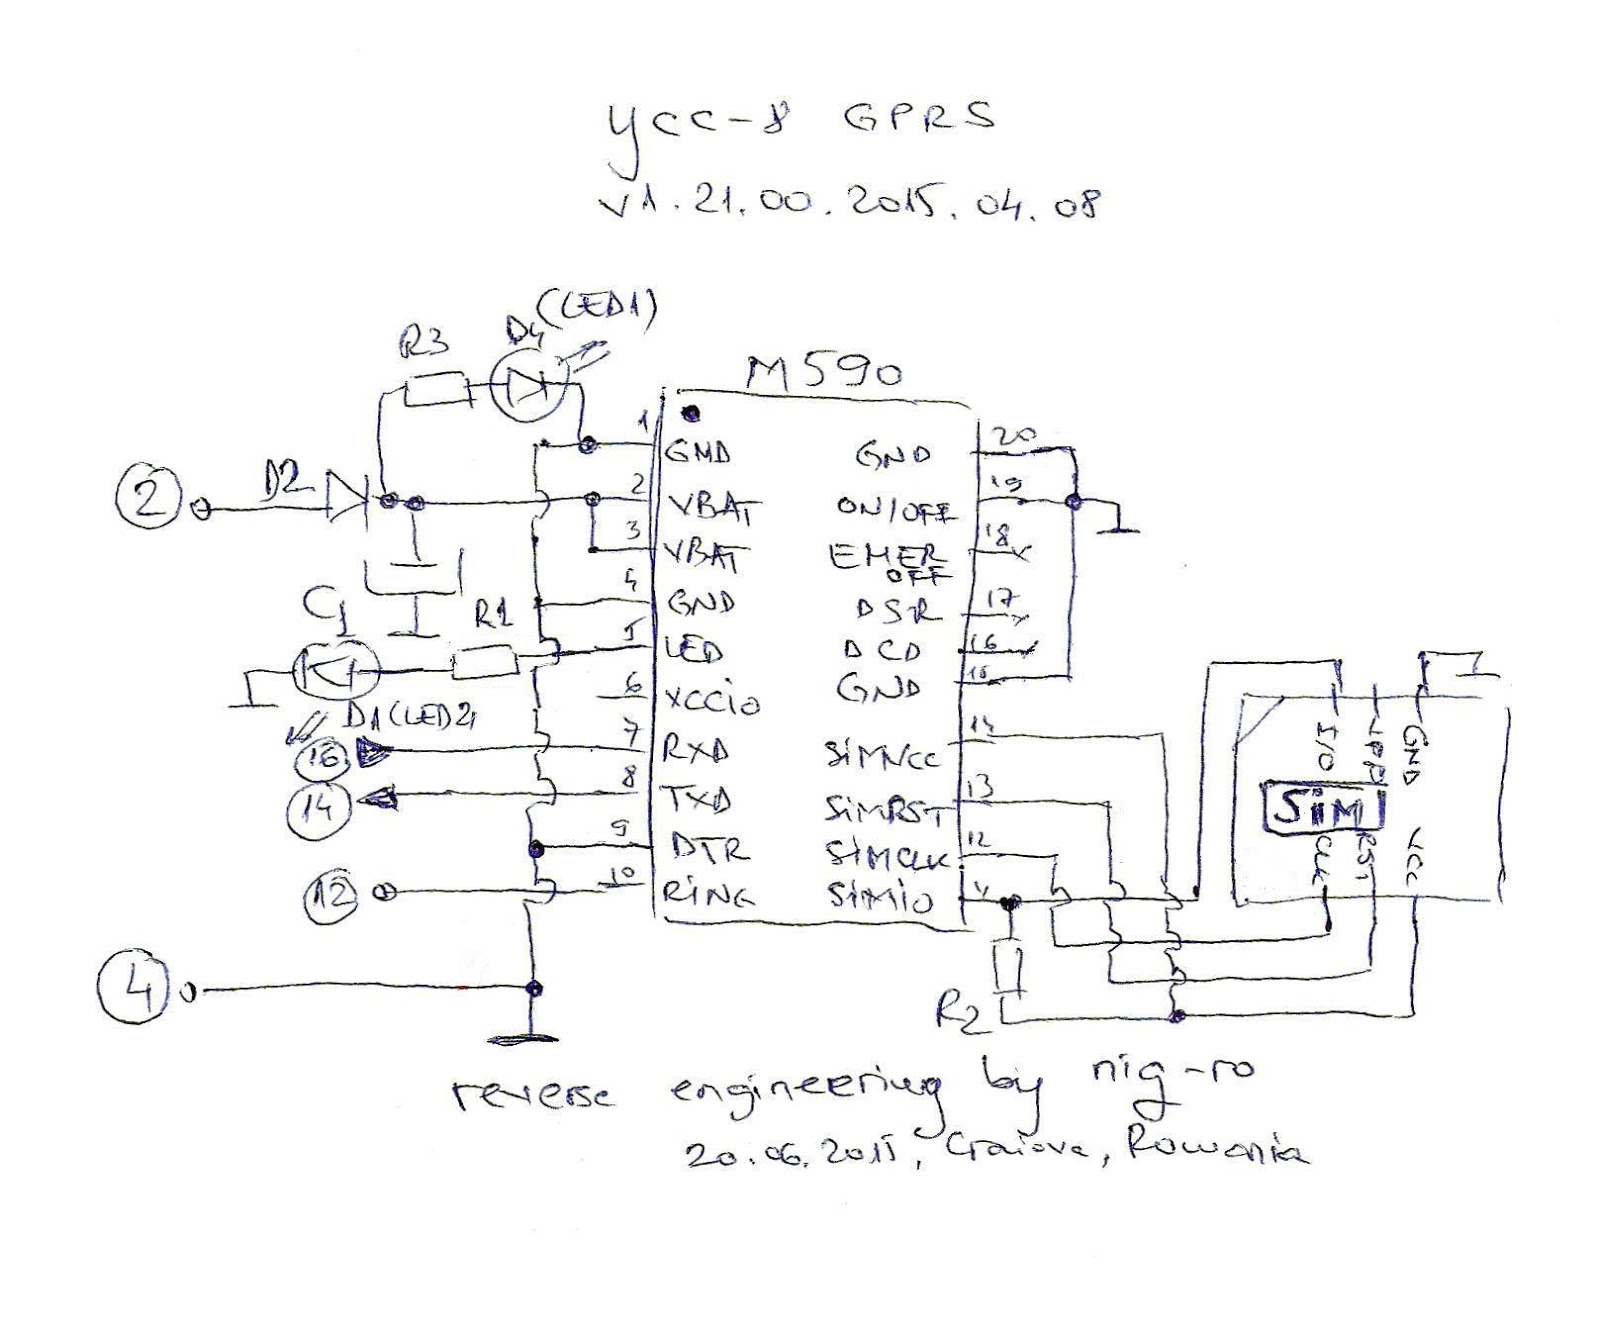 ycc-8 GPRS
v1.21.00.2015.04.08
(LED1)
R3
D4
M590
1
GND
2
VBAT
3
VBAT
4
GND
5
LED
6
VCCIO
7
RXD
8
TXD
9
DTR
10
RING
GND
20
ON/OFF
19
EMER
OFF
18
DSR
17
DCD
16
GND
15
SIMVCC
14
SIMRST
13
SIMCLK
12
SIMIO
2
D2
C1
R1
D1(LED2)
16
14
12
4
I/O
VPP
GND
SIM
CLK
RST
VCC
R2
reverse engineering by nig-ro
20.06.2015, Craiova, Romania